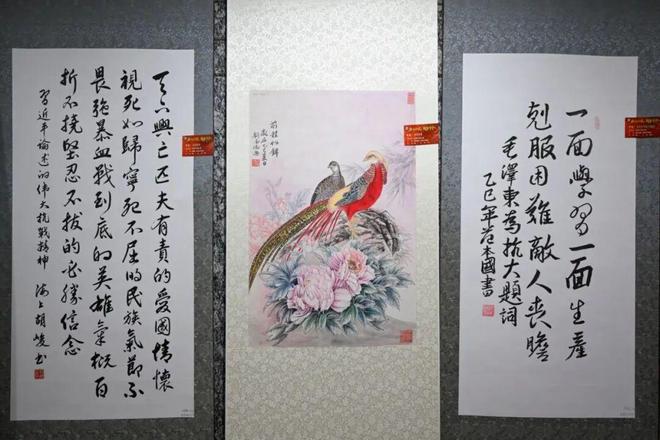 天下興亡匹夫有責的愛國情懷
視死如歸寧死不屈的民族氣節不
畏强暴血戰到底的英雄氣概百
折不撓堅忍不拔的必勝信念
習近平論述的伟大抗戰精神 海上胡峻书
前程似錦
一面學習一面生產
剋服困難敵人喪膽
毛澤東為抗大題詞
乙巳年范本國書